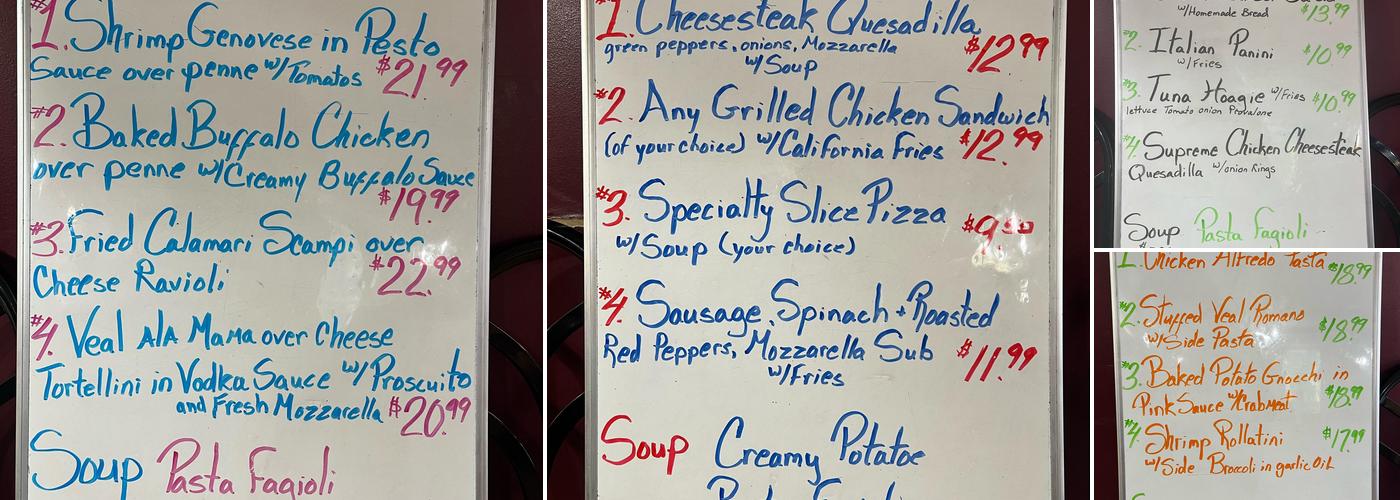 #1. Shrimp Genovese in Pesto
Sauce over penne w/Tomatos $21.99
#2. Baked Buffalo Chicken
over penne w/Creamy Buffalo Sauce
$19.99
#3. Fried Calamari Scampi over
Cheese Ravioli $22.99
#4. Veal AlA Mama over Cheese
Tortellini in Vodka Sauce w/Proscuito
and Fresh Mozzarella $20.99
Soup Pasta Fagioli
1. Cheesesteak Quesadilla
green peppers, onions, Mozzarella $12.99
w/Soup
#2. Any Grilled Chicken Sandwich
(of your choice) w/California Fries $12.99
#3. Specialty Slice Pizza $9.50
w/Soup (your choice)
#4. Sausage, Spinach + Roasted
Red Peppers, Mozzarella Sub $11.99
w/Fries
Soup Creamy Potatoe
w/Homemade Bread $13.99
#2. Italian Panini $10.99
w/Fries
#3. Tuna Hoagie w/Fries $10.99
lettuce Tomato onion Provalone
#4. Supreme Chicken Cheesesteak
Quesadilla w/onion Rings
Soup Pasta Fagioli
1. Chicken Alfredo Pasta $18.99
#2. Stuffed Veal Romano
w/Side Pasta $18.99
#3. Baked Potato Gnocchi in
Pink Sauce w/Crab Meat $18.99
#4. Shrimp Rollatini $17.99
w/Side Broccoli in garlic Oil